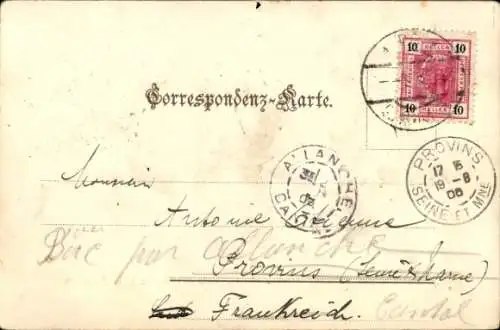 10 HELLER 10
10 10
Correspondenz-Karte.
PROVINS
17 15
19 -8
06
SEINE ET MNE
ALLANCHE
CANTAL
Monsieur
Antoine
par Allanche
Provins (Seine & Marne)
Frankreich.
Cantal